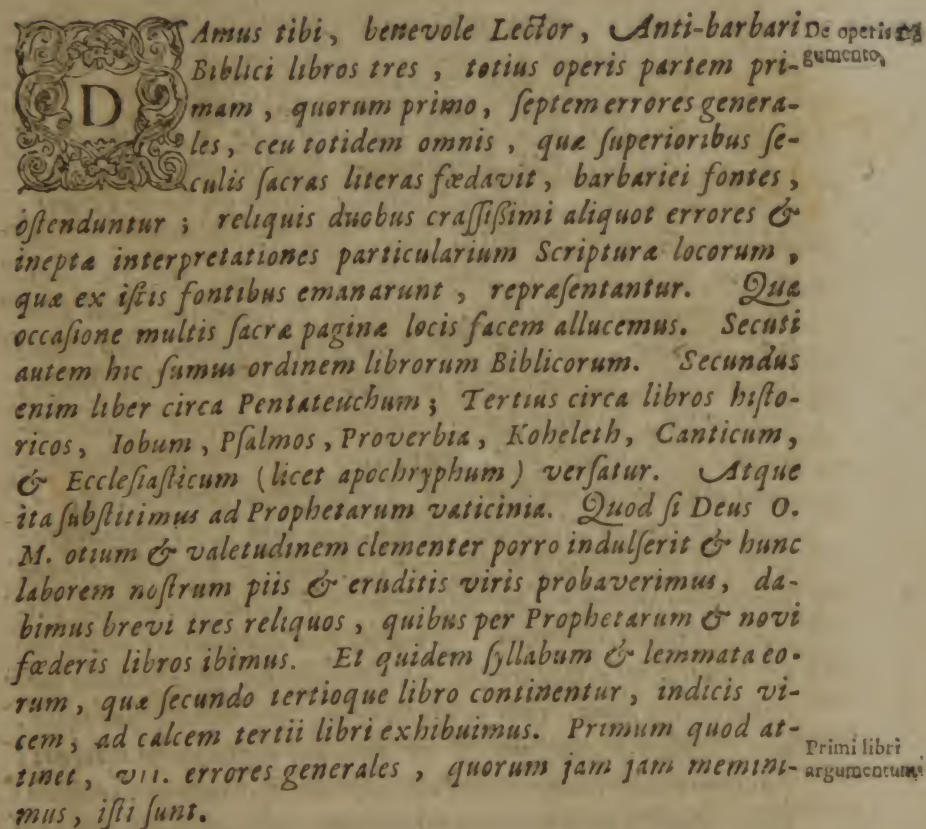 DAmus tibi, benevole Lector, Anti-barbari
Biblici libros tres, totius operis partem pri-
mam, quorum primo, ſeptem errores genera-
les, ceu totidem omnis, quæ ſuperioribus ſe-
culis ſacras literas fœdavit, barbariei fontes,
oſtenduntur; reliquis duobus craſſiſſimi aliquot errores &
ineptæ interpretationes particularium Scripturæ locorum,
quæ ex iſtis fontibus emanarunt, repræſentantur. Qua
occaſione multis ſacræ paginæ locis facem allucemus. Secuti
autem hic ſumus ordinem librorum Biblicorum. Secundus
enim liber circa Pentateuchum; Tertius circa libros hiſto-
ricos, Iobum, Pſalmos, Proverbia, Koheleth, Canticum,
& Eccleſiaſticum (licet apochryphum) verſatur. Atque
ita ſubſtitimus ad Prophetarum vaticinia. Quod ſi Deus O.
M. otium & valetudinem clementer porro indulſerit & hunc
laborem noſtrum piis & eruditis viris probaverimus, da-
bimus brevi tres reliquos, quibus per Prophetarum & novi
fœderis libros ibimus. Et quidem ſyllabum & lemmata eo-
rum, quæ ſecundo tertioque libro continentur, indicis vi-
cem, ad calcem tertii libri exhibuimus. Primum quod at-
tinet, VII. errores generales, quorum jam jam memini-
mus, iſti ſunt.
De operis ar
gumento,
Primi libri
argumentum